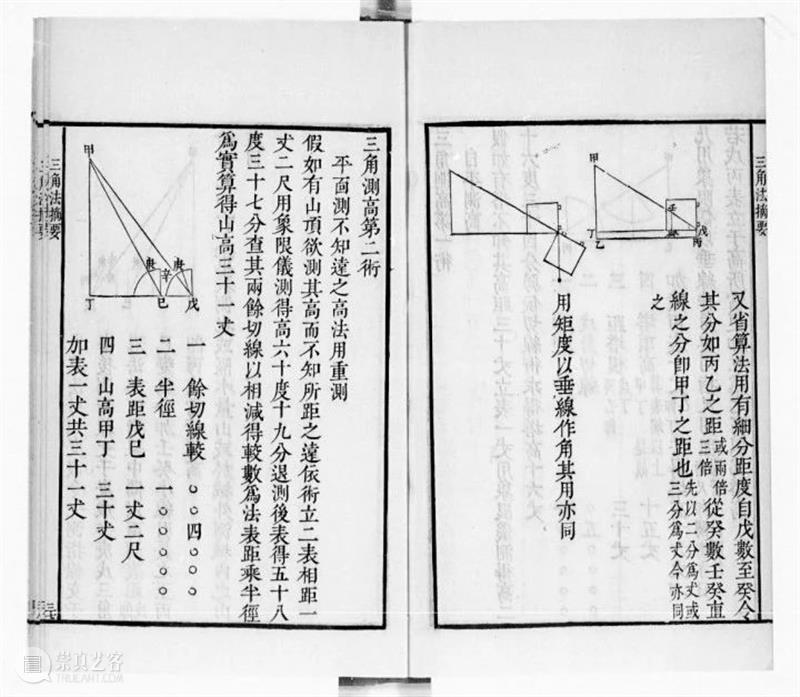 三角法摘要
甲
丁
乙
壬
癸
戊
丙
又省算法用有細分距度自戊數至癸令
其分如丙乙之距或兩倍三倍從癸數壬癸直
線之分卽甲丁之距也先以二分爲丈或三分爲丈今亦同
之
用矩度以垂線作角其用亦同
三角測高第二術
平面測不知遠之高法用重測
假如有山頂欲測其高而不知所距之遠依術立二表相距一
丈二尺用象限儀測得高六十度十九分退測後表得五十八
度三十七分查其兩餘切線以相減得較數爲法表距乘半徑
爲實算得山高三十一丈
甲
庚
辛
庚
丁
巳
戊
一 餘切線較 〇〇四〇〇〇
二 半徑 一〇〇〇〇〇
三 表距戊巳 一丈二尺
四 山高甲丁 三十丈
加表一丈共三十一丈
三角法摘要
崇真艺客
WWW.TRUEART.COM